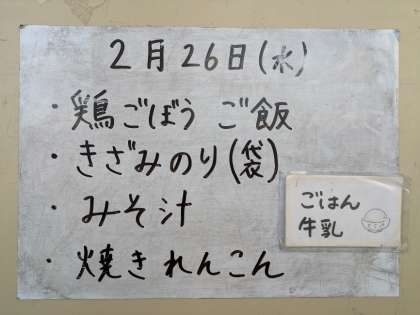 2月26日(水)
・鶏ごぼうご飯
・きざみのり(袋)
・みそ汁
・焼きれんこん
ごはん
牛乳